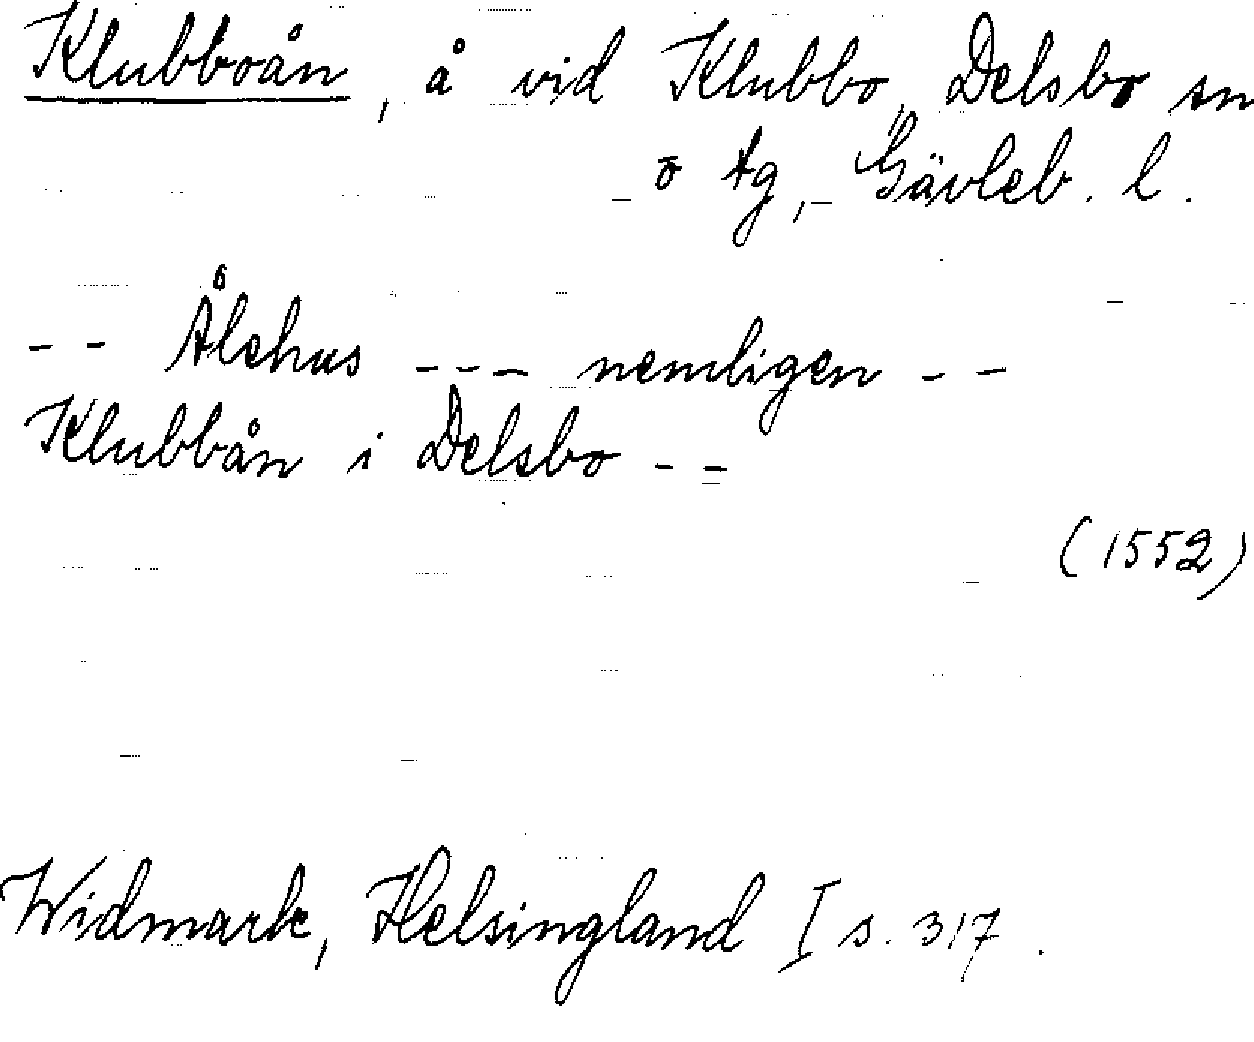 Klubboån, å vid Klubbo, Delsbo sn
o tg, Gävleb. l.
-- Ålehus --- nemligen --
Klubbån i Delsbo --
(1552)
Widmark, Helsingland I s. 317.